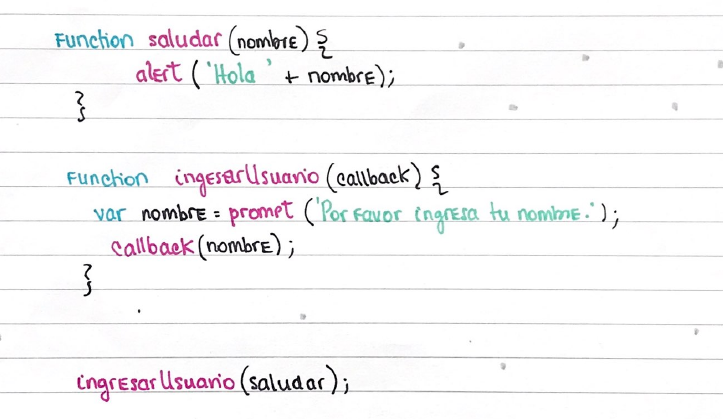 Function saludar (nombre) {
alert ('Hola ' + nombre);
}
Function ingesarUsuario (callback) {
var nombre = prompt ('Por Favor ingresa tu nombre.');
callback (nombre);
}
ingresarUsuario (saludar);